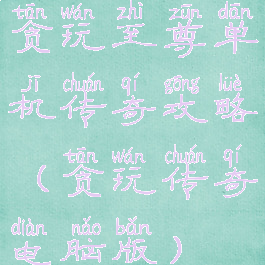 tān wán zhì zūn dān
贪玩至尊单
jī chuán qí gōng lüè
机传奇攻略
tān wán chuán qí
（贪玩传奇
diàn nǎo bǎn
电脑版）